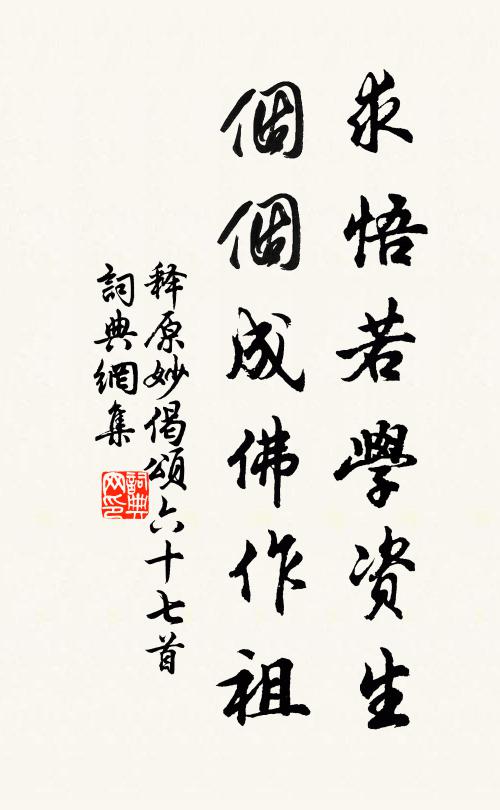 求悟若學资生
個個成佛作祖
释原妙偈頌六十七首
詞典網集
詞典網印